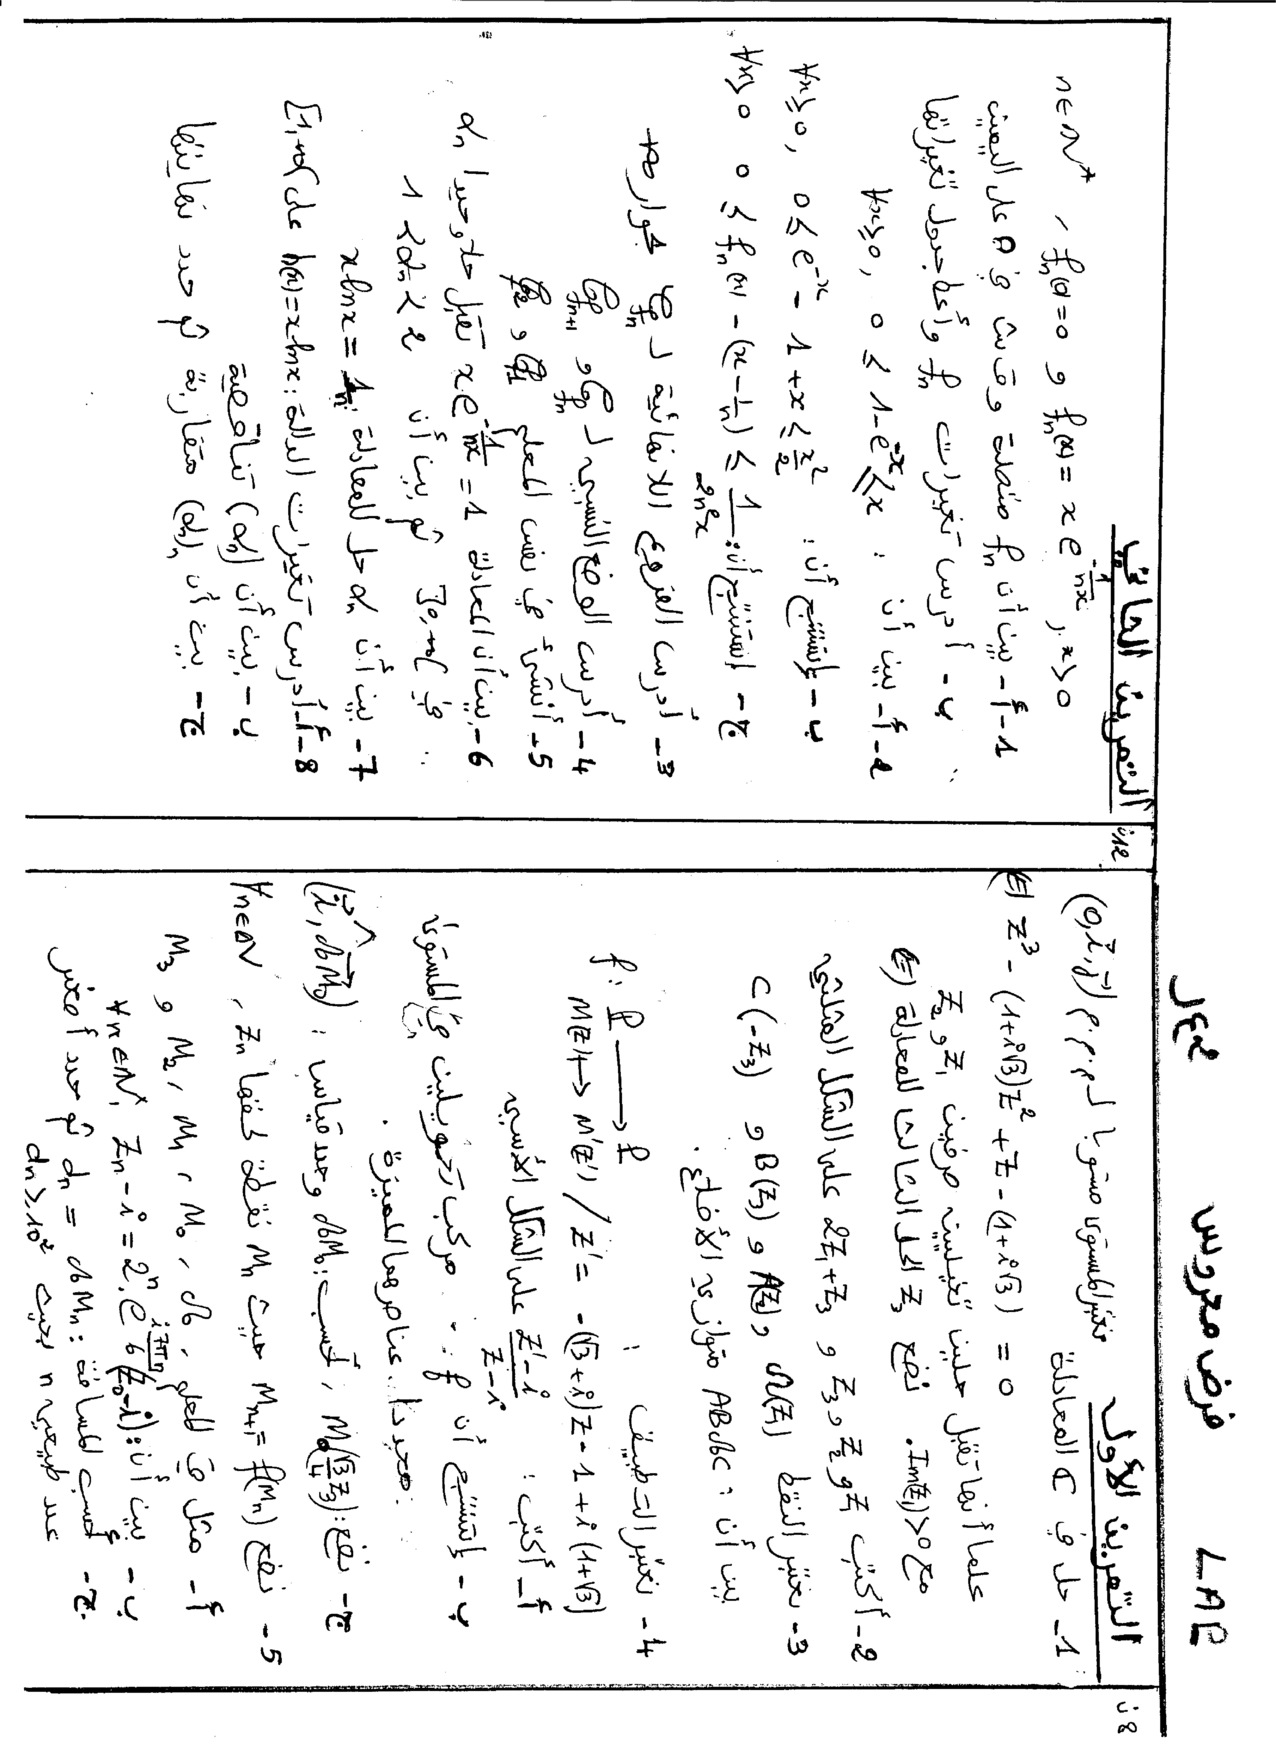 فرض محروس
التمرين الأول
8ن
نعتبر المستوى منسوبا لـ م.م.م (0,i⃗,j⃗)
1- حل في C المعادلة
(E) z³-(1+i√3)z²+z-(1+i√3)=0
علما أنها تقبل حلين تخيليين صرفين z₁ و z₂
مع Im(z₁)>0. نضع z₃ الحل الثالث للمعادلة (E)
2- أكتب z₁ و z₂ و z₃ و 2z₁+z₃ على الشكل المثلثي
3- نعتبر النقط Ω(z₁) و A(z₂) و B(z₃) و C(-z₃)
بين أن : ABΩC متوازي الأضلاع.
4- نعتبر التطبيق :
f: P → P
M(z) ↦ M'(z') / z'=-(√3+i)z-1+i(1+√3)
أ- أكتب : (z'-i)/(z-i) على الشكل الأسي
ب- إستنتج أن f مركب تحويلين في المستوى
محددا عناصرهما المميزة.
ج- نضع : M₀(√3/4 z₃) ، أحسب : ΩM₀ وحدد قياس : (i⃗,ΩM₀)
5- نضع M_{n+1}=f(M_n) حيث M_n نقطة لحقها z_n ، ∀n∈ℕ
أ- مثل في المعلم Ω ، M₀ ، M₁ ، M₂ و M₃
ب- بين أن : z_n-i=2ⁿ.e^{i7πn/6}(z₀-i) ∀n∈ℕ
ج- أحسب المسافة : d_n=ΩM_n ثم حدد أصغر
عدد طبيعي n بحيث d_n≥10²
التمرين الثاني
12ن
n∈ℕ* ، f_n(0)=0 و f_n(x)=x e^{-1/(nx)} , x>0
1-أ- بين أن f_n متصلة وقـ ش في 0 على اليمين
ب- أدرس تغيرات f_n وأعط جدول تغيراتها
2-أ- بين أن : ∀x≥0, 0≤1-e^{-x}≤x
ب- إستنتج أن : ∀x≥0, 0≤e^{-x}-1+x≤x²/2
ج- استنتج أن : ∀x>0 0≤f_n(x)-(x-1/n)≤1/(2n²x)
3- أدرس الفروع اللانهائية لـ C_{f_n} بجوار +∞
4- أدرس الوضع النسبي لـ C_{f_n} و C_{f_{n+1}}
5- أنشئ في نفس المعلم C_{f_1} و C_{f_2}
6- بين أن المعادلة x.e^{-1/(nx)}=1 تقبل حلا وحيدا α_n
في ]0,+∞[ ثم بين أن 1<α_n<2
7- بين أن α_n حل للمعادلة : x ln x=1/n
8-أ- أدرس تغيرات الدالة : h(x)=x ln x على [1,+∞[
ب- بين أن (α_n) تناقصية
ج- بين أن (α_n) متقاربة ثم حدد نهايتها